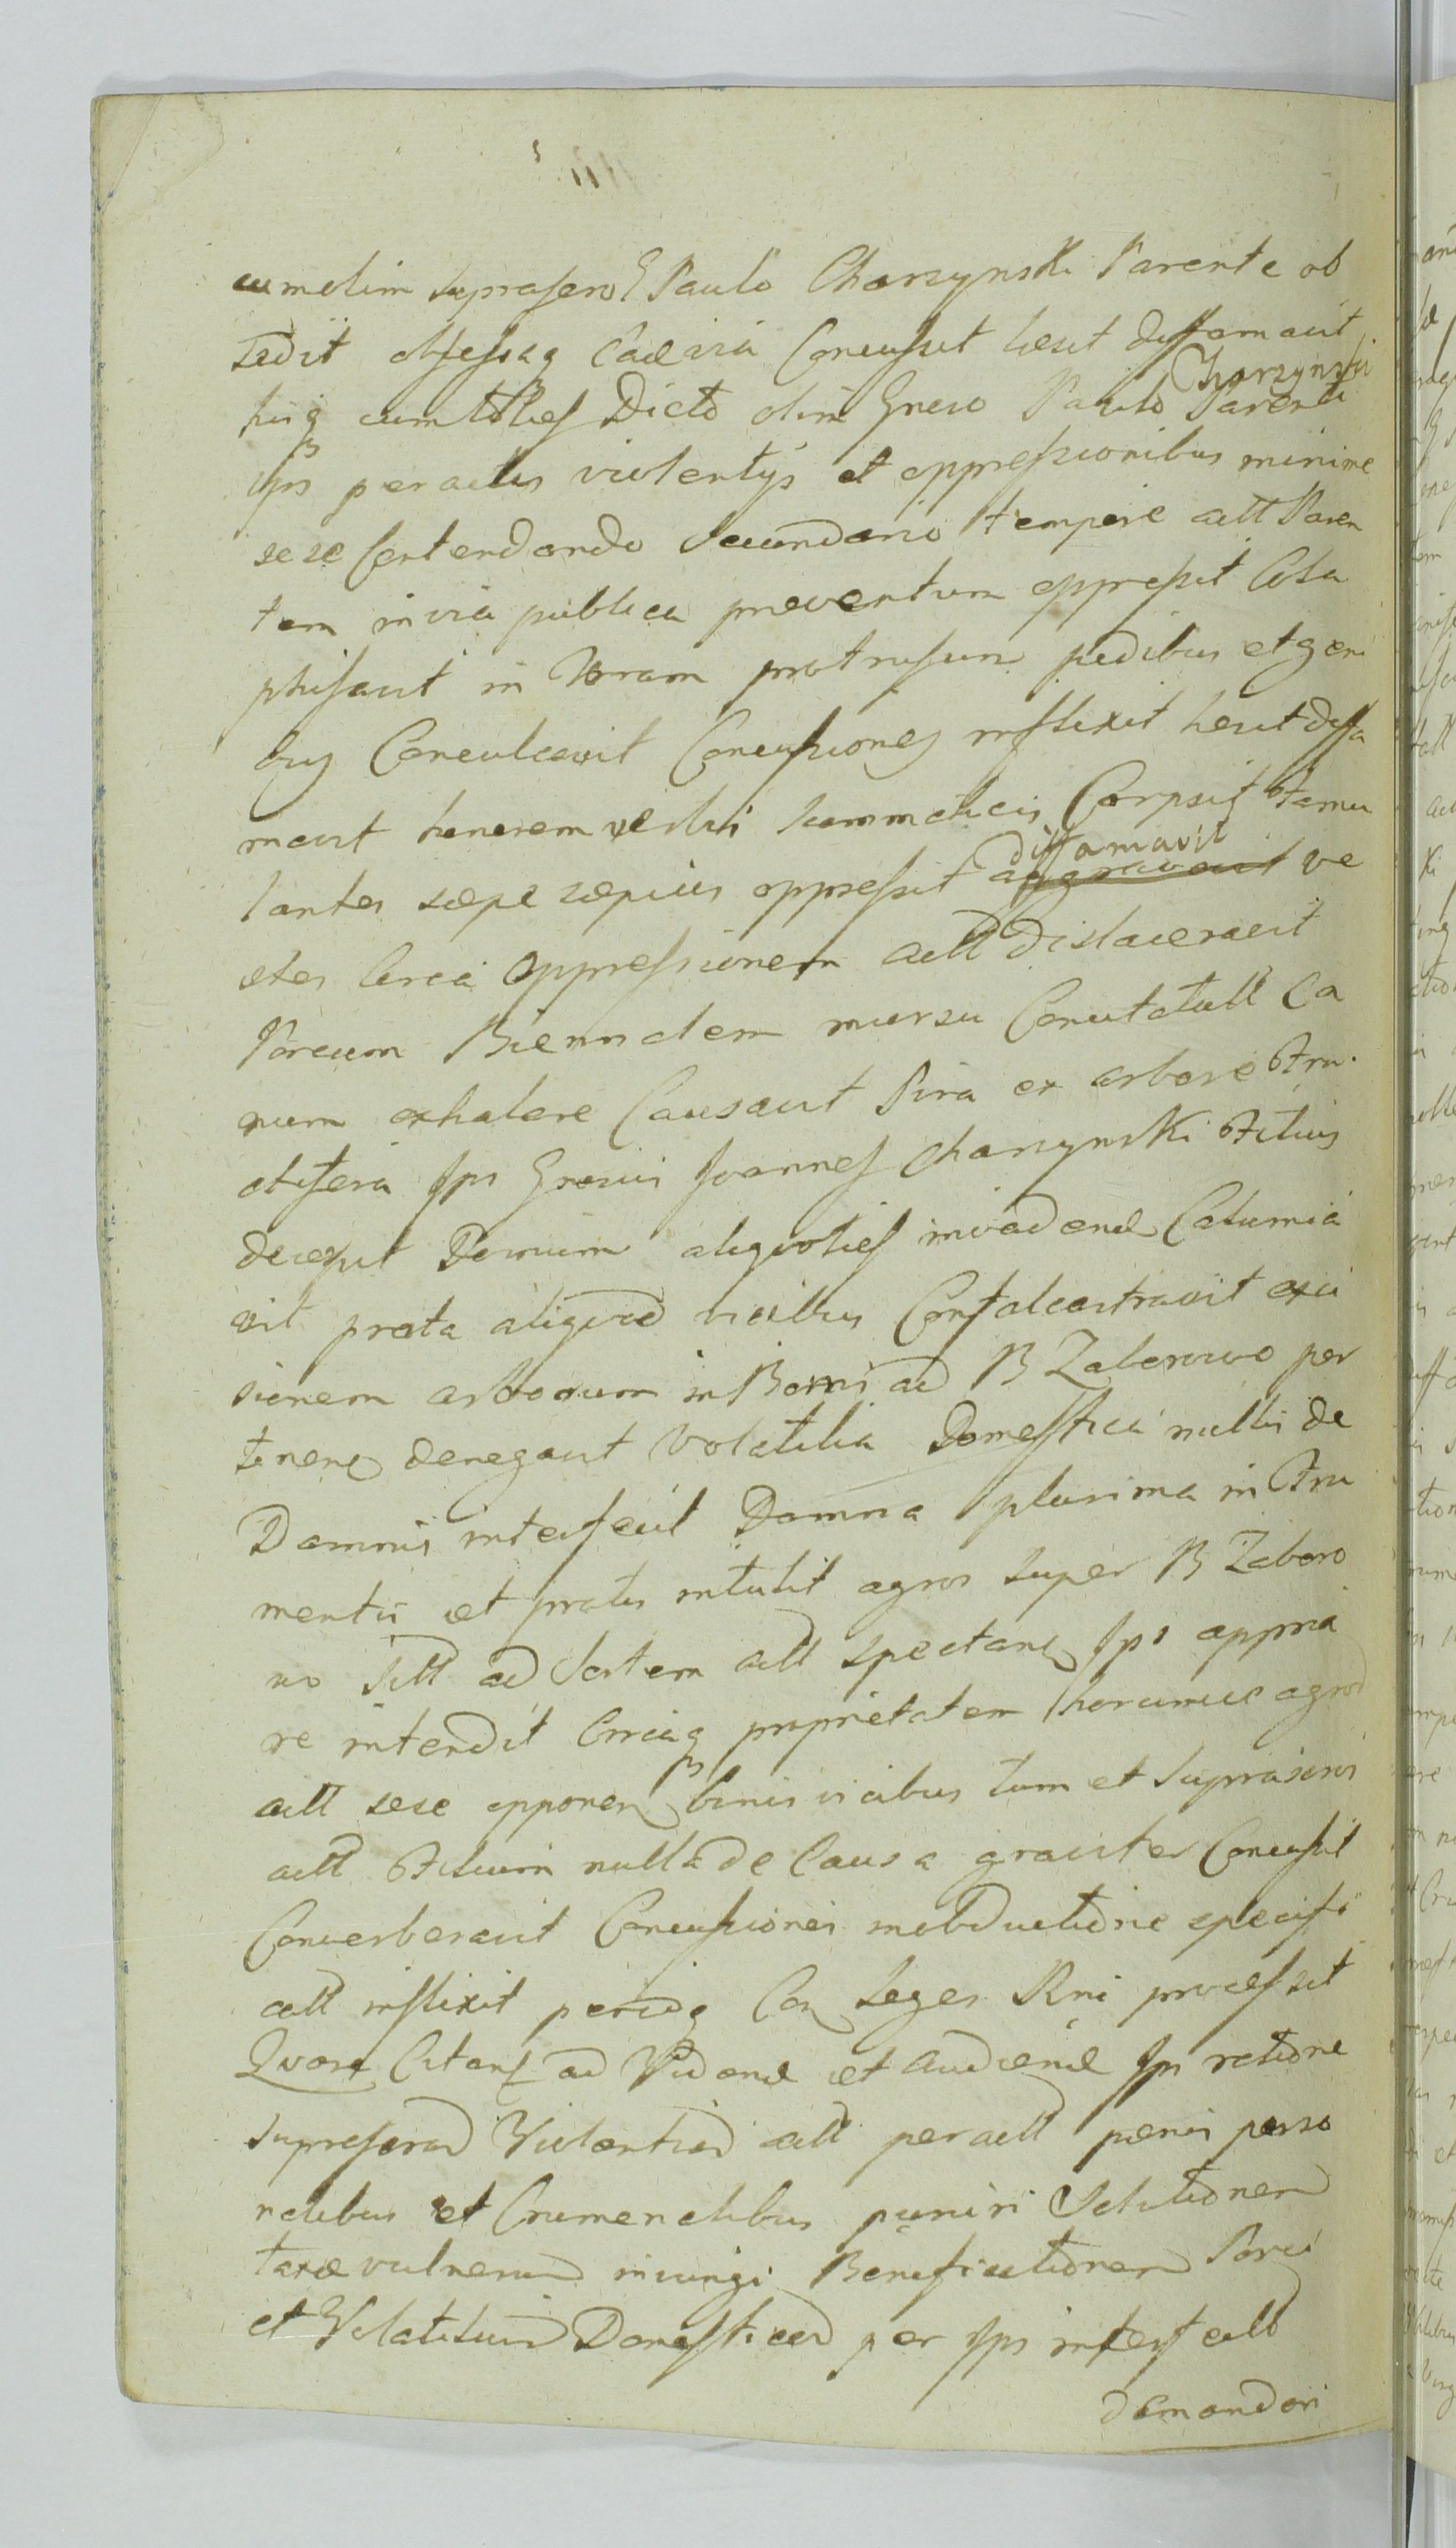 cum olim suprascro G Paulo Charzynski Parente ob
sedit obsessaq Cadavia Concussit læsit diffamavit
hisq cum toties Dicto olim Gneso Paulo Charzynski Parenti
Ips peractis violentijs et oppressionibus minime
sese contendando secundario tempore actt Paren
tem in via publica preventum oppressit Cola
phisavit in terram protrusum pedibus et geni
bus Conculcavit Concussiones inflixit læsit diffa
mavit honorem verbis summaticis Corpsit Famu
lantes sæpe sæpius oppressit aggravavit diffamavit ve
stes circa oppressionem actt dislaceravit
Porcum Biennalem morsu Ca
num exhalare Causavit Pira ex arbore Fru
ctifera Ips Gnesus Joannes Charzynski Filius
decussit Domum aliquoties invadend Calumnia
vit prata aliquod vicibus Confalcastravit exci
sionem arborum in Borris ad B Zaborowo per
tinen denegavit Volatilia Domestica nullis de
Damnis interfecit Damna plurima in Fru
mentis et pratis intulit agros super B Zaboro
wo Sitt ad Sortem actt spectan Ips appria
re intendit Circaq proprietatem horumce agrod
actt sese opponen binis vicibus tum et suprascros
actt Filium nulla de Causa graviter Concussit
Converberavit Concussiones in obductione specifi
catt inflixit pariq Con Leges Rni processit
Quare Citans ad Vidend et Audiend Ips ratione
suprascrad Violentiad actt peractt pænis perso
nalibus et Criminalibus puniri Solutionem
taxæ vulnerum iniungi Bonificationem Porci
et Volatilium Domesticod per Ips interfectt
demandari